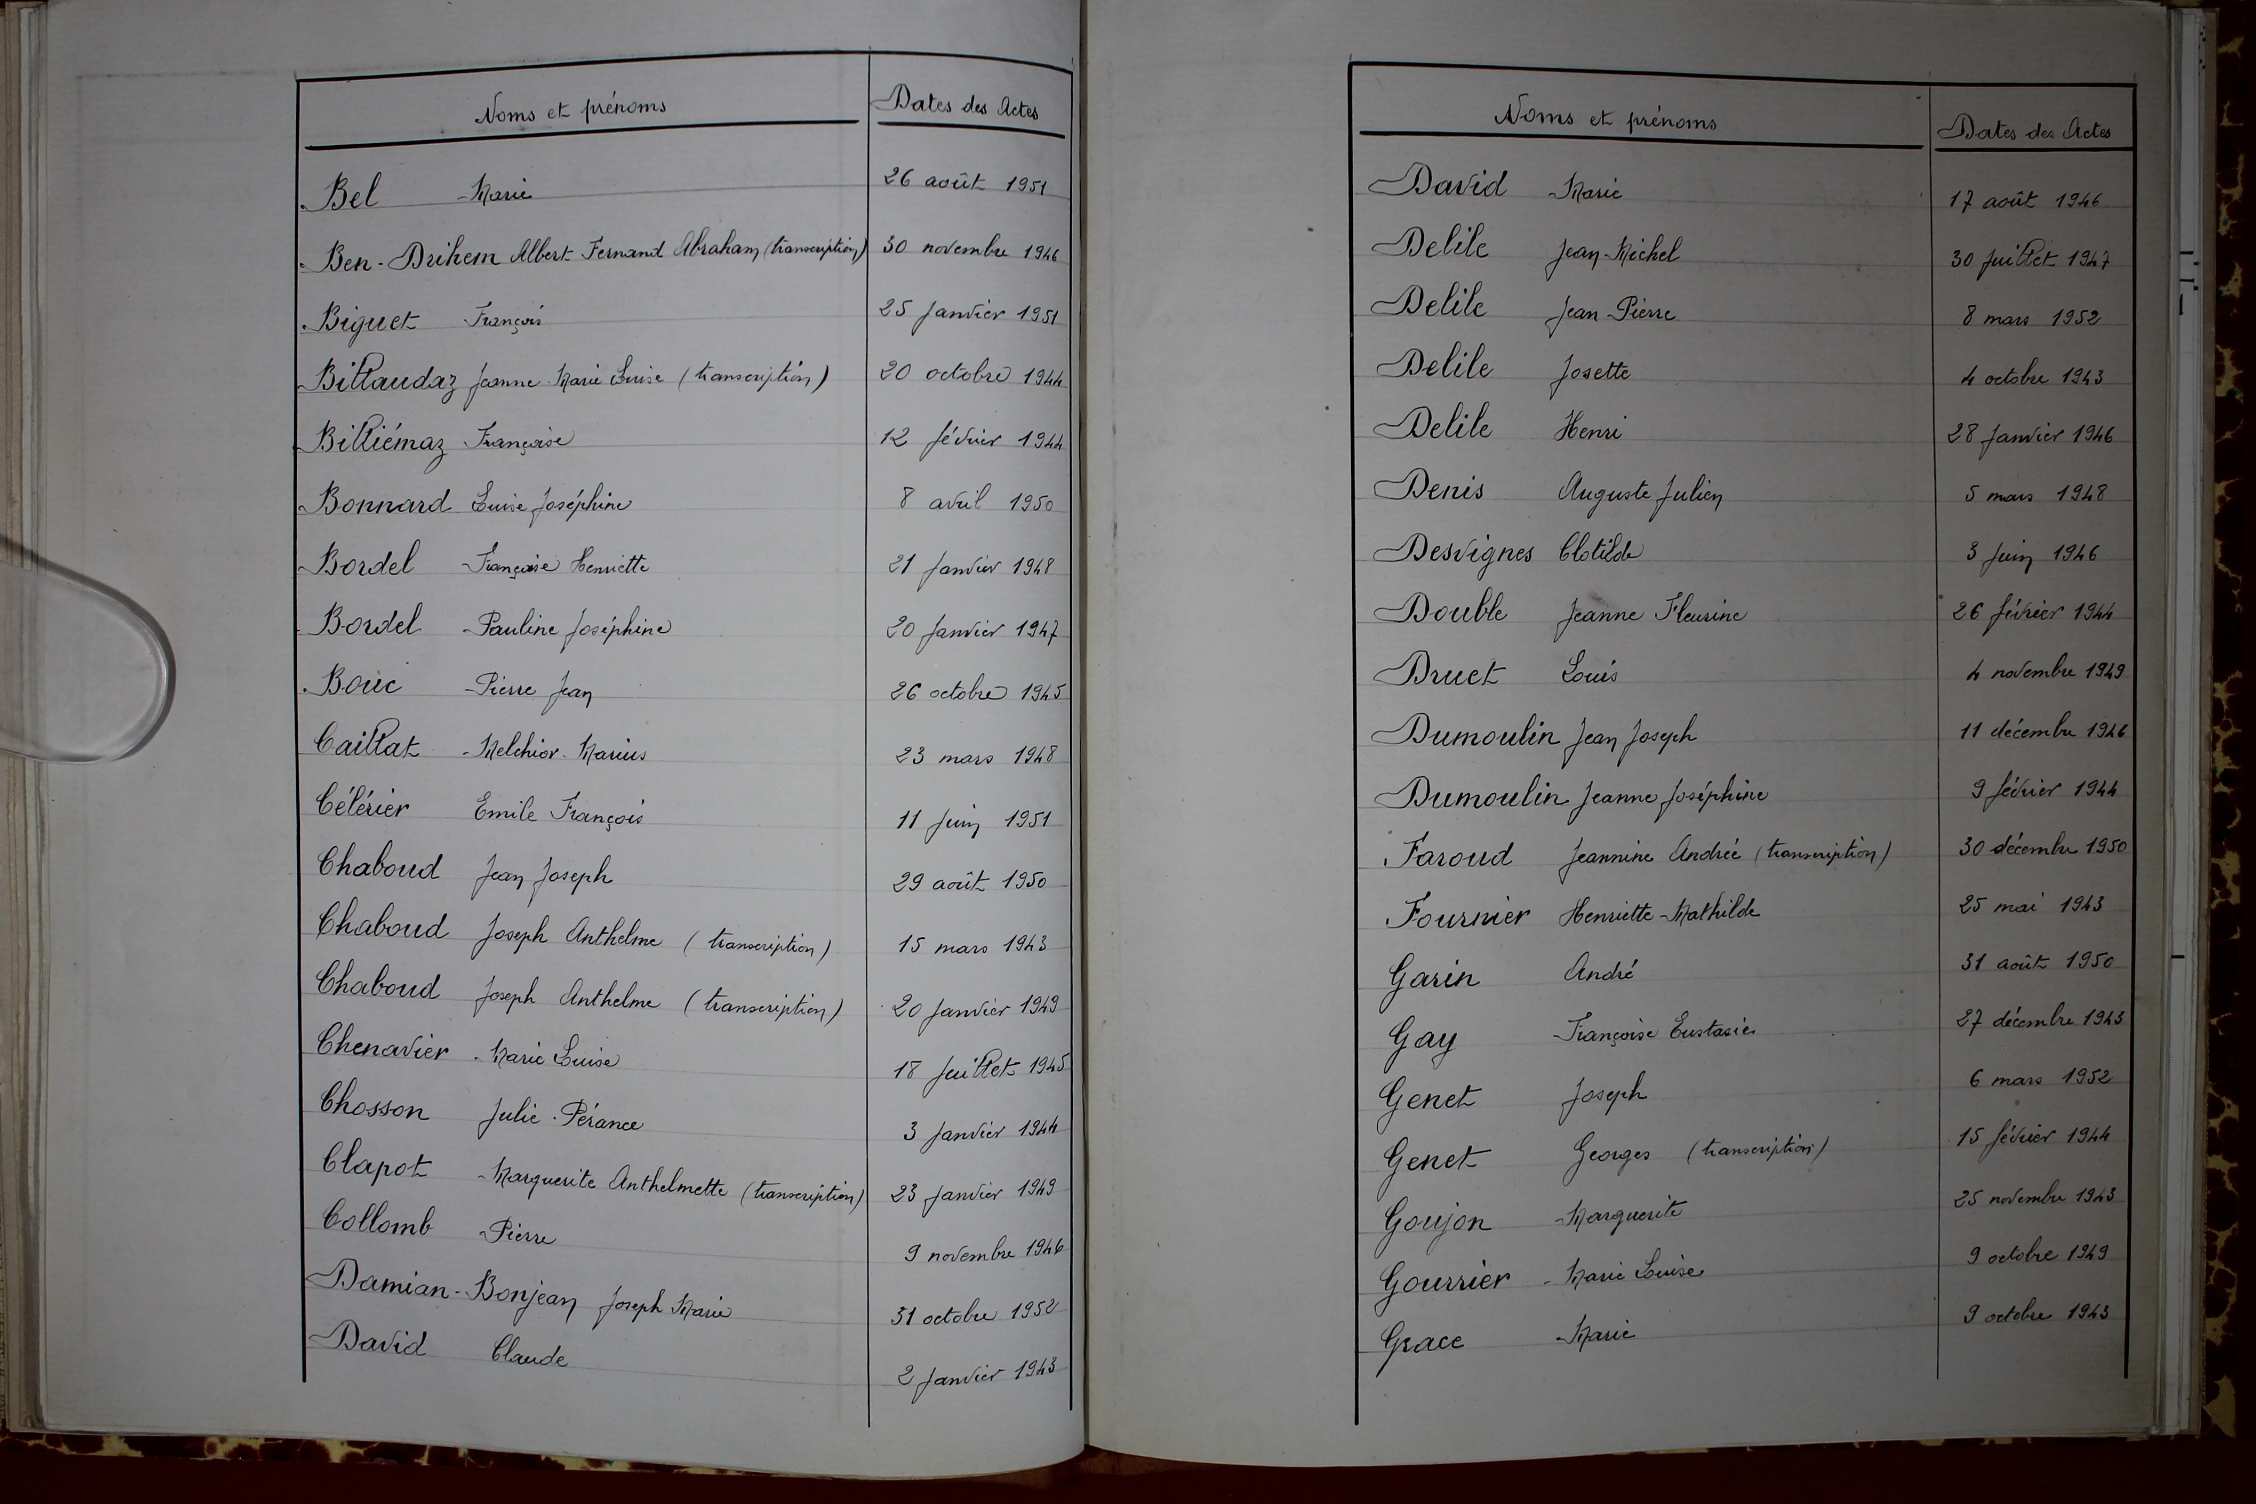 Noms et prénoms Dates des Actes
Bel Marie 26 août 1951
Ben-Drihem Albert Fernand Abraham (transcription) 30 novembre 1946
Biguet François 25 Janvier 1951
Billaudaz Jeanne Marie Louise (transcription) 20 octobre 1944
Billiémaz Françoise 12 février 1944
Bonnard Louise Joséphine 8 avril 1950
Bordel Françoise Henriette 21 Janvier 1948
Bordel Pauline Joséphine 20 Janvier 1947
Bouc Pierre Jean 26 octobre 1945
Caillat Melchior-Marius 23 mars 1948
Célérier Emile François 11 Juin 1951
Chaboud Jean Joseph 29 août 1950
Chaboud Joseph Anthelme (transcription) 15 mars 1943
Chaboud Joseph Anthelme (transcription) 20 Janvier 1949
Chenavier Marie Louise 18 Juillet 1945
Chosson Julie Pérance 3 Janvier 1944
Clapot Marguerite Anthelmette (transcription) 23 Janvier 1949
Collomb Pierre 9 novembre 1946
Damian-Bonjean Joseph Marie 31 octobre 1952
David Claude 2 Janvier 1943
Noms et prénoms Dates des Actes
David Marie 17 août 1946
Delile Jean-Michel 30 Juillet 1947
Delile Jean-Pierre 8 mars 1952
Delile Josette 4 octobre 1943
Delile Henri 28 Janvier 1946
Denis Auguste Julien 5 mars 1948
Desvignes Clotilde 3 Juin 1946
Double Jeanne Fleurine 26 février 1944
Druet Louis 4 novembre 1949
Dumoulin Jean Joseph 11 décembre 1946
Dumoulin Jeanne Joséphine 9 février 1944
Faroud Jeannine Andrée (transcription) 30 décembre 1950
Fournier Henriette-Mathilde 25 mai 1943
Garin André 31 août 1950
Gay Françoise Eustasie 27 décembre 1943
Genet Joseph 6 mars 1952
Genet Georges (transcription) 15 février 1944
Goujon Marguerite 25 novembre 1943
Gourrier Marie Louise 9 octobre 1949
Grace Marie 9 octobre 1943